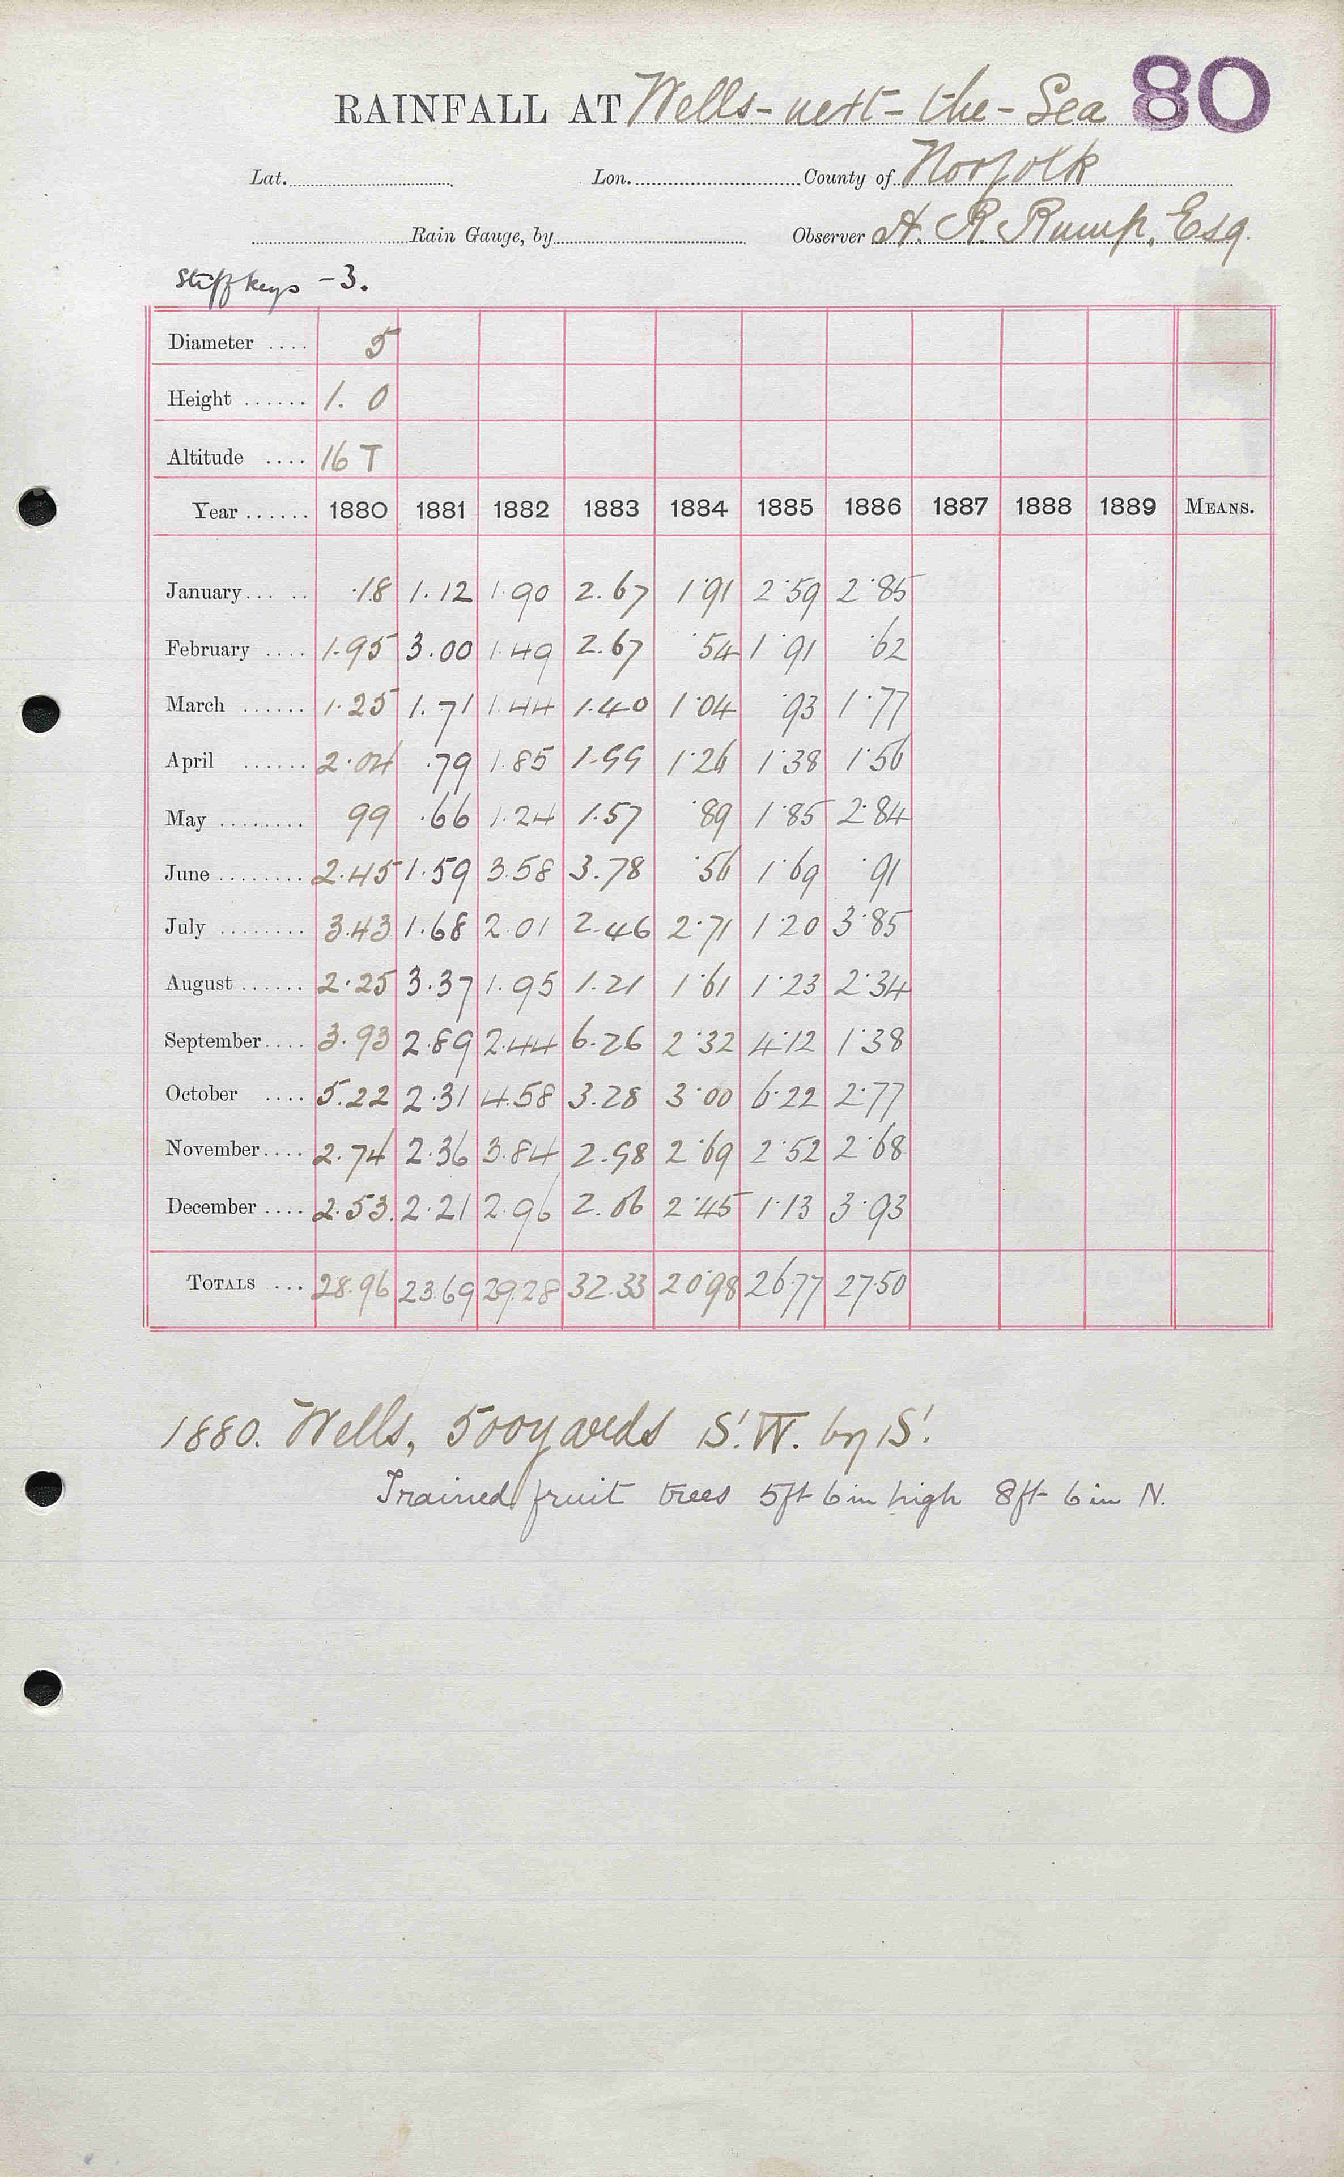 RAINFALL AT Wells-next-the-Sea 80
Lat. Lon. County of Norfolk
Rain Gauge, by Observer H. R. Rump, Esq.
Stiffkeys -3.
Diameter .... 5
Height ...... 1. 0
Altitude .... 16 T
Year ...... 1880 1881 1882 1883 1884 1885 1886 1887 1888 1889 MEANS.
January ... .. ·18 1.12 1.90 2.67 1·91 2·59 2·85
February .... 1.95 3.00 1.49 2.67 ·54 1·91 ·62
March ...... 1.25 1.71 1.44 1.40 1·04 ·93 1·77
April ...... 2.04 .79 1.85 1.99 1·26 1·38 1·56
May ........ 99 .66 1.24 1.57 ·89 1·85 2·84
June ........ 2.45 1.59 3.58 3.78 ·56 1·69 ·91
July ........ 3.43 1.68 2.01 2.46 2·71 1·20 3·85
August ...... 2.25 3.37 1.95 1.21 1·61 1·23 2·34
September .... 3.93 2.89 2.44 6.26 2·32 4·12 1·38
October .... 5.22 2.31 4.58 3.28 3·00 6·22 2·77
November .... 2.74 2.36 3.84 2.98 2·69 2·52 2·68
December .... 2.53. 2.21 2.96 2.06 2·45 1·13 3·93
TOTALS ... 28.96 23.69 29.28 32.33 20·98 26·77 27·50
1880. Wells, 500 yards S. W. by S.
Trained fruit trees 5ft 6in high 8ft 6in N.